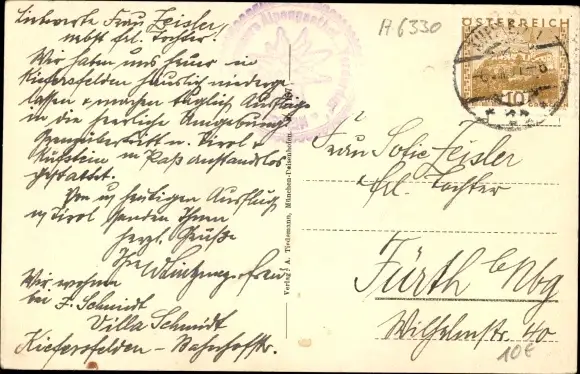 Liebwerte Frau Zeisler
nebst frl. Tochter!
Wir haben uns heuer in
Kiefersfelden häuslich niederge-
lassen & machen täglich Ausflüge
in die herrliche Umgebung.
Grenzübertritt n. Tirol &
Kufstein m. Paß anstandslos
gestattet.
Von u/ heutigen Ausflug
n/ Tirol senden Ihnen
herzl. Grüße
Ihr & Frau
Wir wohnen
bei F. Schmidt
Villa Schmidt
Kiefersfelden - Bahnhofstr.
Verlag: A. Tiedemann, München-Pasenhofen
A 6330
ÖSTERREICH
10
Frau Sofie Zeisler
Frl. Tochter
Fürth b/Nbg
Wilhelmstr. 40
10€